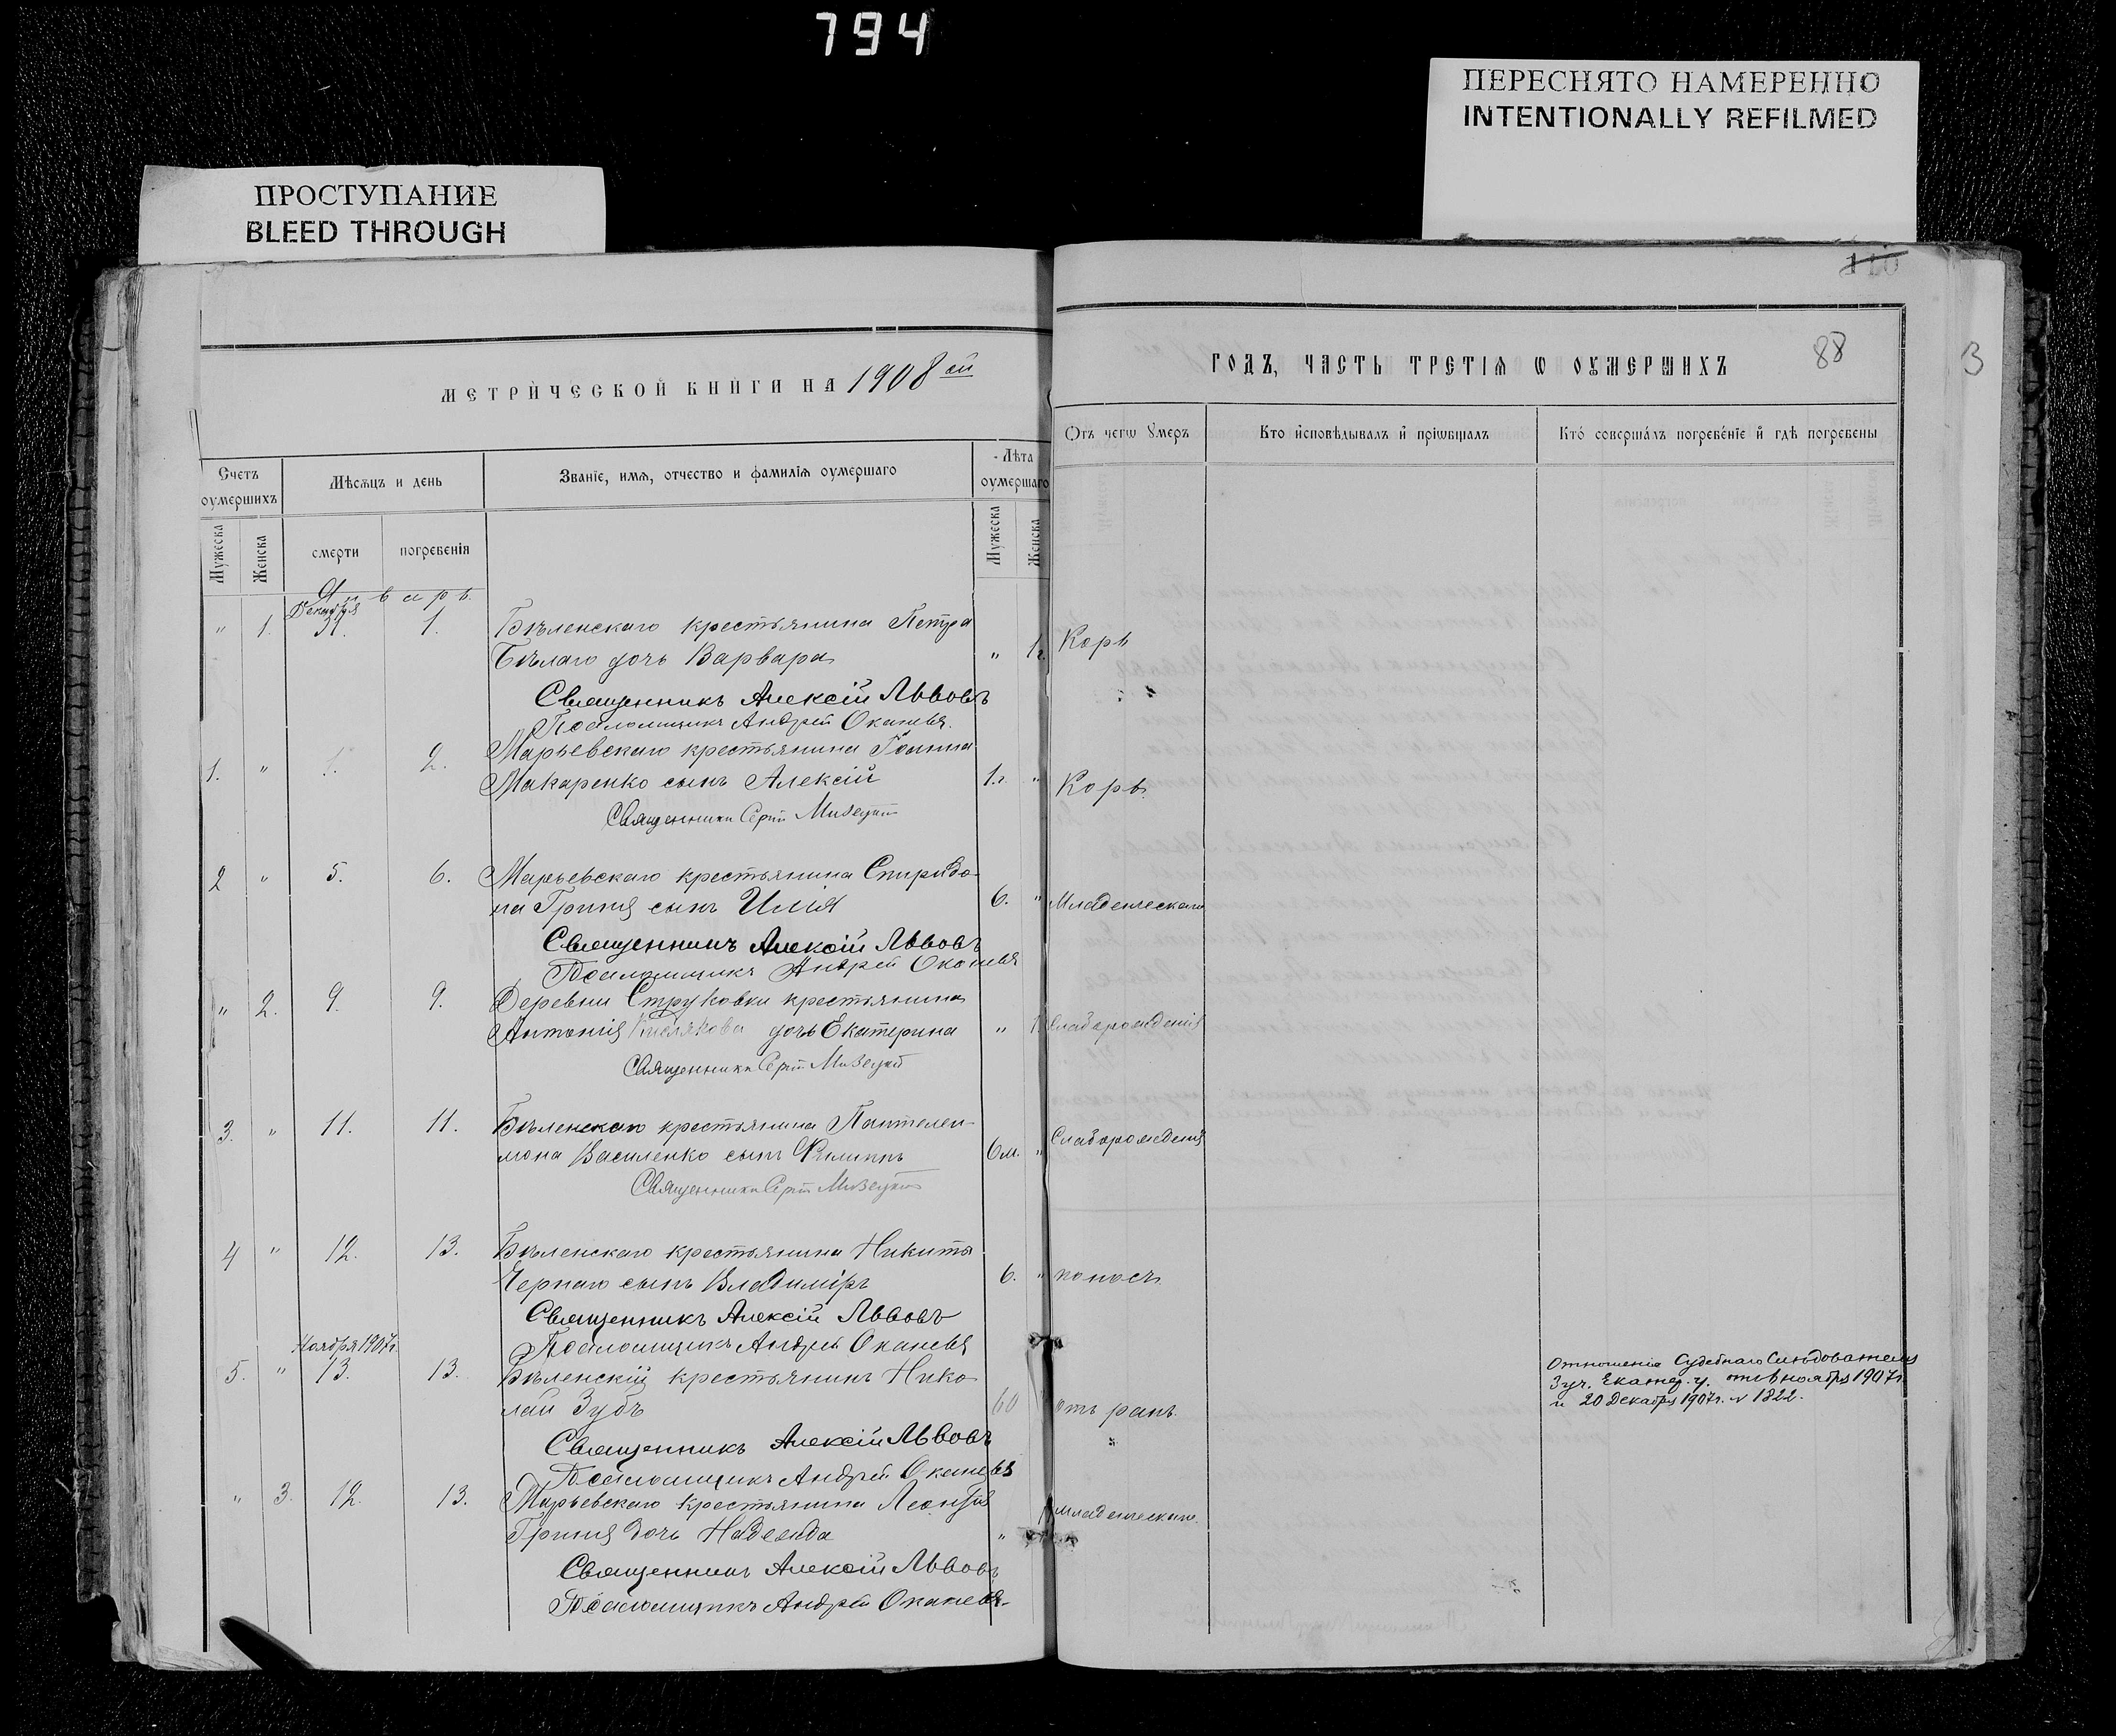 794
ПЕРЕСНЯТО НАМЕРЕННО
INTENTIONALLY REFILMED
ПРОСТУПАНИЕ
BLEED THROUGH
110
МЕТРИЧЕСКОЙ КНИГИ НА 1908 ой
ГОДЪ, ЧАСТЬ ТРЕТІЯ Ѡ ОУМЕРШИХЪ
88
3
Счетъ оумершихъ
Мѣсяцъ и день
Званіе, имя, отчество и фамилія оумершаго
Лѣта оумершаго
Отъ чегѡ Умеръ
Кто исповѣдывалъ и пріѡбщалъ
Кто совершалъ погребеніе и гдѣ погребены
Мужеска
Женска
смерти
погребенія
Мужеска
Женска
Январь.
Декабря
" 1. 31. 1. Бѣленскаго крестьянина Петра
Бѣлаго дочь Варвара " 1г. Корь
Священникъ Алексій Львовъ
Псаломщикъ Андрей
Марьевскаго крестьянина Іоанна
1. " 1. 2. Макаренко сынъ Алексій 1г. " Корь.
Священникъ Сергій
2 " 5. 6. Марьевскаго крестьянина Спиридо-
на Гриня сынъ Илія 6. " Младенческаго
Священникъ Алексій Львовъ
Псаломщикъ Андрей
" 2. 9. 9. Деревни Струковки крестьянина
Антонія Кислякова дочь Екатерина " Слаборожденія
Священникъ Сергій
3. " 11. 11. Бѣленскаго крестьянина Пантелеи-
мона Василенко сынъ Филиппъ 6м. " Слаборожденія
Священникъ Сергій
4 " 12. 13. Бѣленскаго крестьянина Никиты
Чернаго сынъ Владиміръ 6. " поносъ
Священникъ Алексій Львовъ
Псаломщикъ Андрей
Ноября 1907г.
5. " 13. 13. Бѣленскій крестьянинъ Нико-
лай Зубъ 60 отъ ранъ.
Отношенія Судебнаго Слѣдователя
3 уч. Екатер. у. ноября 1907г.
и 20 Декабря 1907г. № 1322.
Священникъ Алексій Львовъ
Псаломщикъ Андрей
" 3. 12. 13. Марьевскаго крестьянина Леонтія
Гриня дочь Надежда " Младенческаго.
Священникъ Алексій Львовъ
Псаломщикъ Андрей